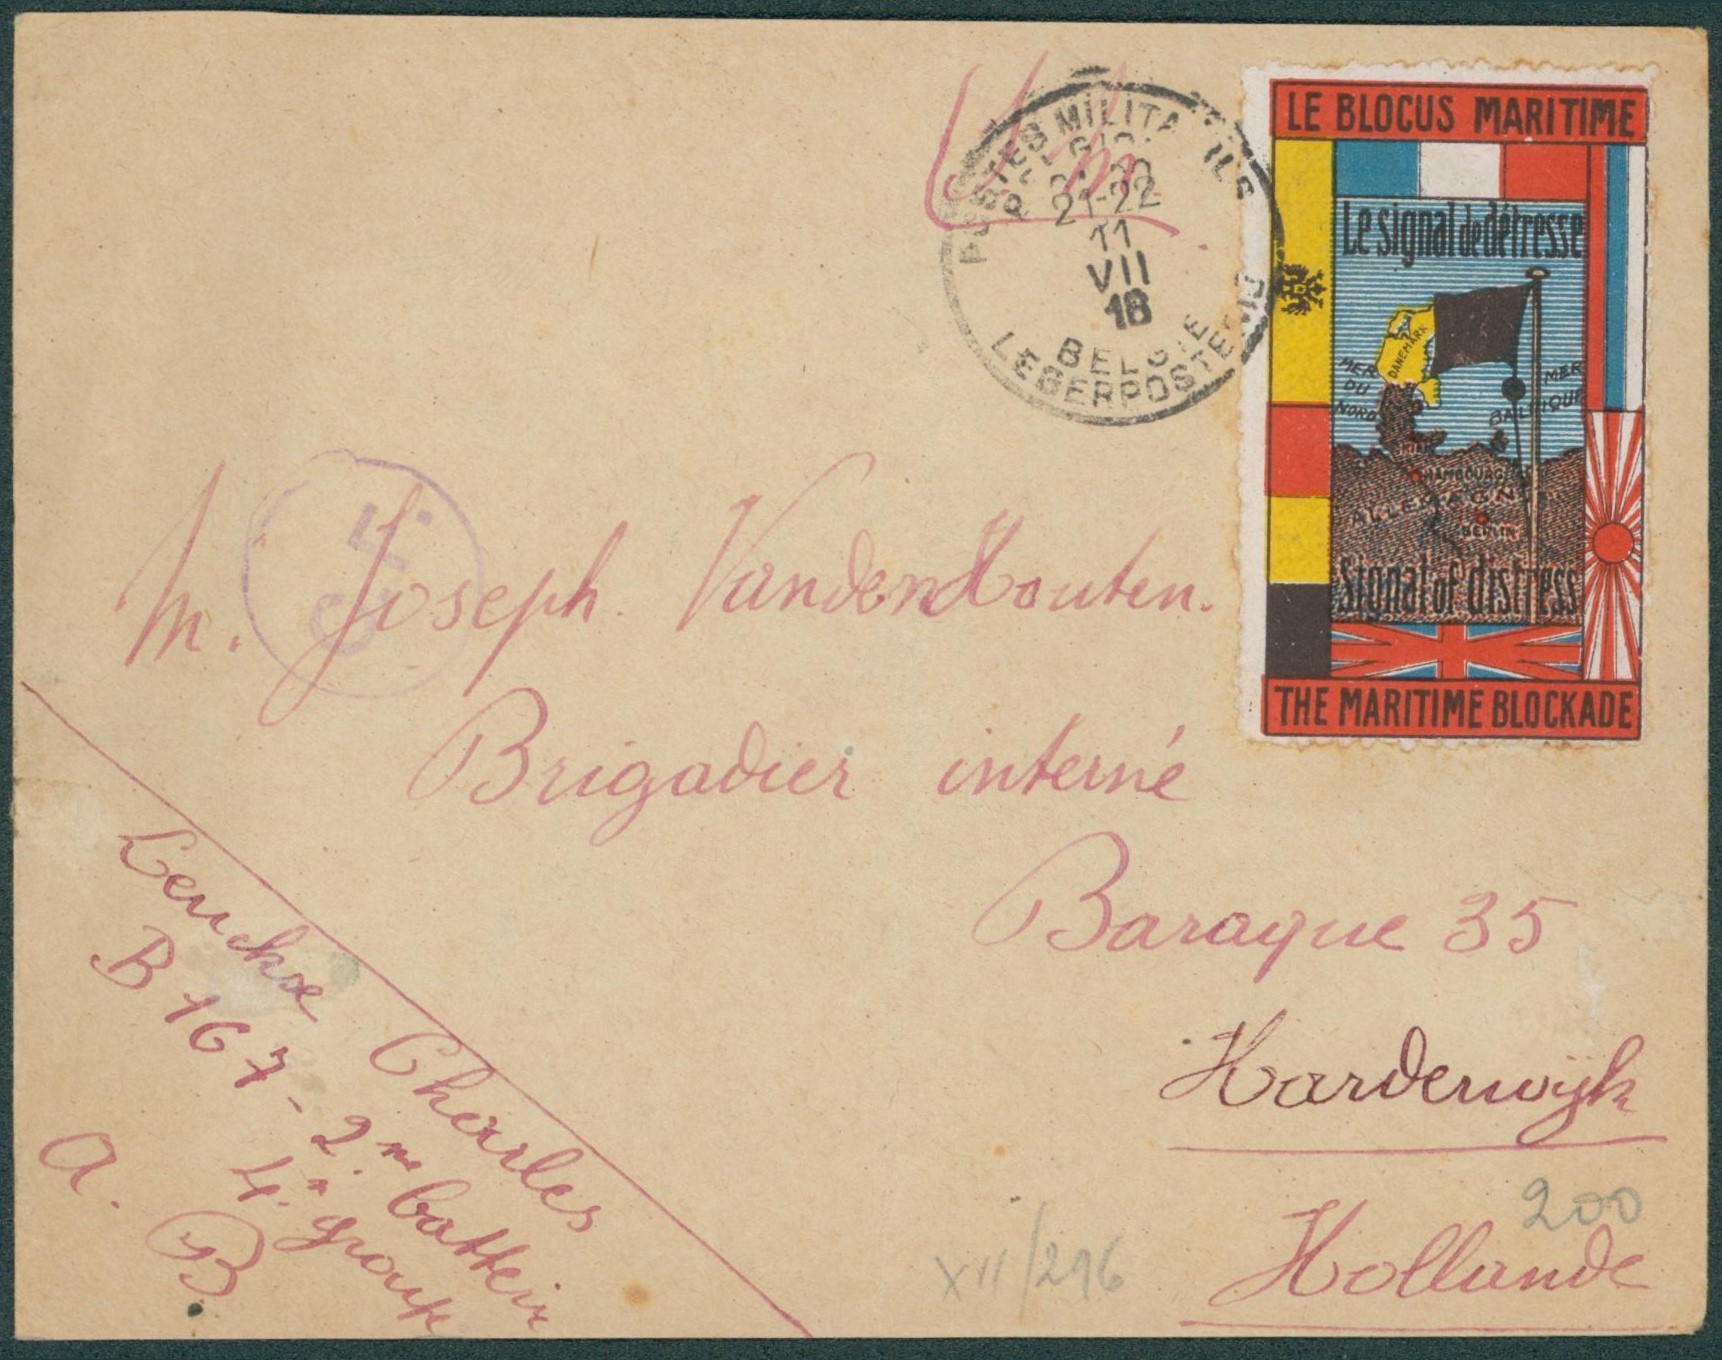 S.M.
POSTES MILITAIRES
BELGIQUE
21-22
11
VII
18
BELGIE
LEGERPOSTERIJ
LE BLOCUS MARITIME
Le signal de détresse
DANEMARK
MER DU NORD
MER BALTIQUE
KIEL
HAMBOURG
ALLEMAGNE
BERLIN
Signal of distress
THE MARITIME BLOCKADE
M. Joseph VandenHouten.
Brigadier interné
Baraque 35
Harderwijk
Hollande
Charles
B 167 - 2me batterie
4e groupe
A. B.
XII/296
200